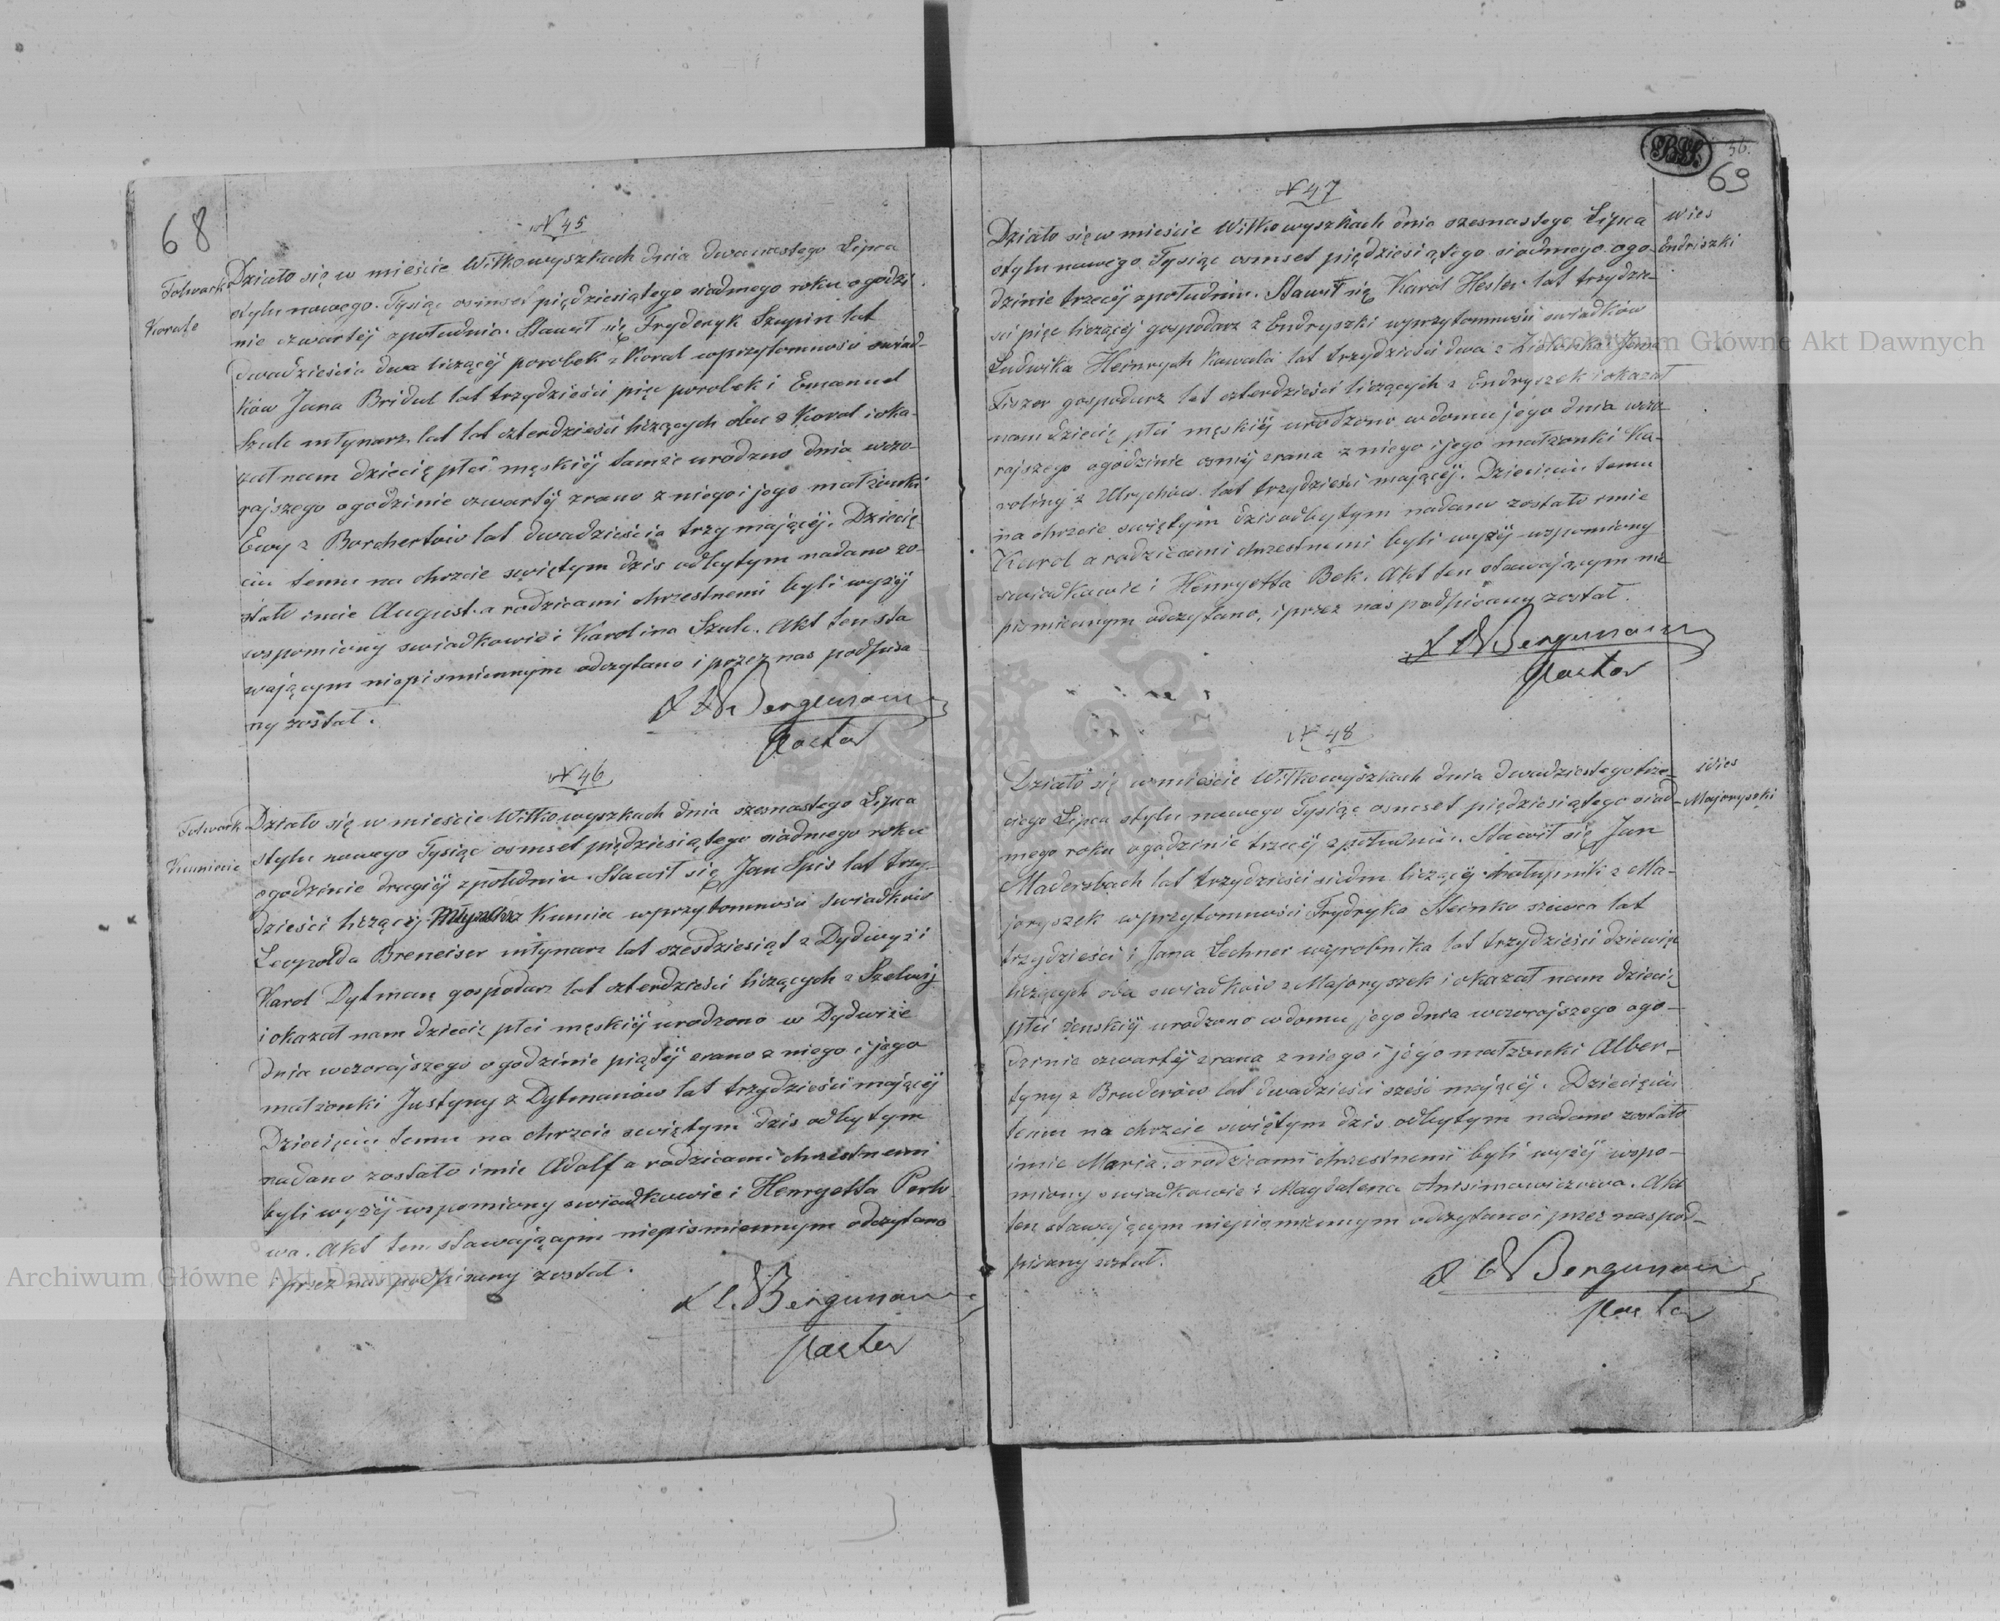 68
N 45
Folwark
Korale
Działo się w mieście Wiłkowyszkach dnia dwunastego Lipca
stylu nowego. Tysiąc osmset piędziesiątego siadmego roku o godzi
nie czwartéj zpołudnia. Stawił się Fryderyk Szupin lat
dwadzieścia dwa liczącéj porobek z Koral wprzytomności swiad-
ków Jana Bridul lat trzydzieści pięc porobek i Emanuel
Szulc młynarz lat lat czterdzieści liczących obu z Koral i oka-
zał nam dziecię płci męskiéj tamże urodzno dnia wczo-
rajszego ogodzinie czwartéj zrano z niego i jego małżonki
Ewy z Borchertów lat dwadzieścia trzy mającéj. Dziecię
ciu temu na chrzcie swiętym dzis odbytym nadano zo-
stało imie August. a rodzicami chrzestnemi byli wyżéj
wspomiony swiadkowie i Karolina Szulc. Akt ten sta
wającym niepismiennym odczytano i przez nas podpisa
ny został.
Bergemann
Pastor
N 46
Folwark
Kumiecie
Działo się w miescie Wiłkowyszkach dnia szesnastego Lipca
stylu nowego Tysiąc osmset piędziesiątego siadmego roku
ogodzinie drugiéj zpołudniu. Stawił się Jan Spis lat trzy-
dzieści liczącéj Młynarz z Kumiec wprzytomności swiadków
Leopolda Breneiser młynarz lat szesdziesiąt z Dydwyż i
Karol Dytman gospodarz lat czterdzieści liczących z Szelwij
i okazał nam dziecię płci męskiéj urodzono w Dydwiże
dnia wczorajszego ogodzinie piątéj zrano z niego i jego
małżonki Justyny z Dytmanów lat trzydzieści mającéj
Dziecięciu temu na chrzcie swiętym dzis odbytym
nadano zostało imie Adolf a rodzicami chrzestnemi
byli wyżéj wspomiony swiadkowie i Henryetta Perko-
wa. Akt ten stawającym niepismiennym odczytano
i przez nas podpisany został.
Bergemann
Pastor
36.
69
N 47
wies
Endriszki
Działo się w mieście Wiłkowyszkach dnia szesnastego Lipca
stylu nowego Tysiąc osmset piędziesiątego siadmego. ogo-
dzinie trzecéj zpołudniu. Stawił się Karol Hester lat trzydzie-
sci pięc liczącéj gospodarz z Endryszki wprzytomności swiadków
Ludwika Heinrych kowala lat trzydzieści dwa z Jana
Fiszer gospodarz lat czterdzieści liczących z Endryszek i okazał
nam dziecię płci męskiéj urodzono w domu jego dnia wczo-
rajszego ogodzinie osméj zrana z niego i jego małżonki Ka-
roliny z Ulrychów lat trzydzieści mającéj. Dziecięciu temu
na chrzcie swiętym dzis odbytym nadano zostało imie
Karol a rodzicami chrzestnemi byli wyżéj wspomiony
swiadkowie i Henryetta Bek. Akt ten stawającym nie
pismiennym odczytano, i przez nas podpisany został.
Bergemann
Pastor
N 48
Wies
Majoryszki
Działo się w mieście Wiłkowyszkach dnia dwudziestego trze-
ciego Lipca stylu nowego Tysiąc osmset piędziesiątego siad-
mego roku ogodzinie trzecéj zpołudniu. Stawił się Jan
Maderzbach lat trzydzieści siedm liczącéj chałupnik z Ma-
joryszek wprzytomności Frydryka Steinko szewca lat
trzydzieści i Jana Lechner wyrobnika lat trzydzieści dziewięc
liczących oba swiadków z Majoryszek i okazał nam dziecię
płci żenskiéj urodzono w domu jego dnia wczorajszego ogo-
dzinie czwartéj zrana z niego i jego małżonki Alber-
tyny z Bruderów lat dwadzieści sześć mającéj. Dziecięciu
temu na chrzcie swiętym dzis odbytym nadano zostało
imie Maria. a rodzicami chrzestnemi byli wyżéj wspo-
miony swiadkowie i Magdalena Anisimowiczowa. Akt
ten stawającym niepismiennym odczytano i przez nas pod-
pisany został.
Bergemann
Pastor
Archiwum Główne Akt Dawnych
Archiwum Główne Akt Dawnych